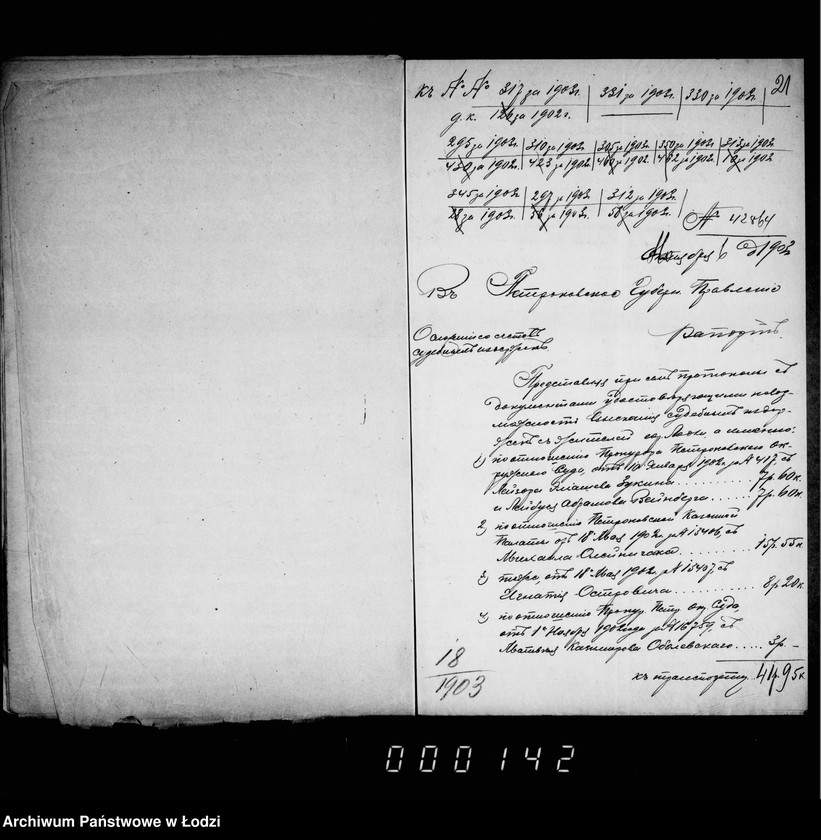 21
къ №№ 317 за 1902г. 331 за 1902г. 330 за 1902г.
д.к. за 1902г.
295 за 1902г. 310 за 1902г. 305 за 1902г. 350 за 1902г. 313 за 1902
430 за 1902г. 423 за 1902г. за 1902 за 1902г. за 1902
345 за 1902г. 297 за 1902г. 312 за 1902г.
за 1902г. за 1902г. за 1902г.
№ 42864
Ноября 6 д 1902
Въ Петроковское Губерн. Правленіе
рапортъ.
О сложеніи со счетовъ
судебныхъ издержекъ
Представляя при семъ протоколы съ
документами удостовѣряющими невоз-
можность взысканія судебныхъ издер-
жекъ съ жителей гор. Лодзи, а именно:
1) по отношенію Прокурора Петроковскаго Ок-
ружнаго Суда, отъ 10 Января 1902г. за № 417, съ
7р. 60к.
и Лейбуся Абрамова Вейнберга 7р. 60к.
2) по отношенію Петроковской Казенной
Палаты отъ 18 Мая 1902г. за № 15406, съ
Михаила Олейничака 15р. 55к.
3) тоже, отъ 18 Мая 1902г. за № 15407 съ
Игнатія Островича 8р. 20к.
4) по отношенію Прокур. Петр. Окр. Суда,
отъ 1 Ноября 1901 года за № 16759, съ
Матвѣя Казимирова Оболевскаго 3р. –
къ транспорту 41р. 95к.
18
1903
000142
Archiwum Państwowe w Łodzi